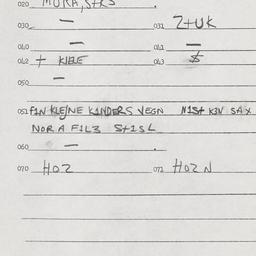 020 MORA, STKS
030 — 031 Z+UK
040 — 041 —
042 + KIELE 043 $
050 —
051 FIN KLEJNE KINDERS VEGN NIST KIN SAX
NOR A FIL3 STISL
060 —
070 HOZ 071 HOZN